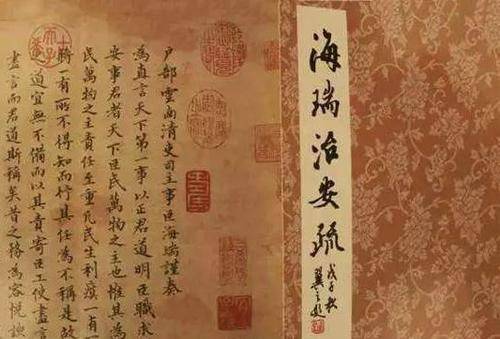 海瑞治安疏
戊子秋
户部雲南清吏司主事臣海瑞謹奏
為直言天下第一事以正君道明臣職求
安事君者天下臣民萬物之主也惟其為
民萬物之主責任至重凡民生利瘼一有
將一有所不得知而行其任為不稱是故
道宜無不備而以其責寄臣工使盡言
盡言而君道斯稱矣昔之務為容悅諛